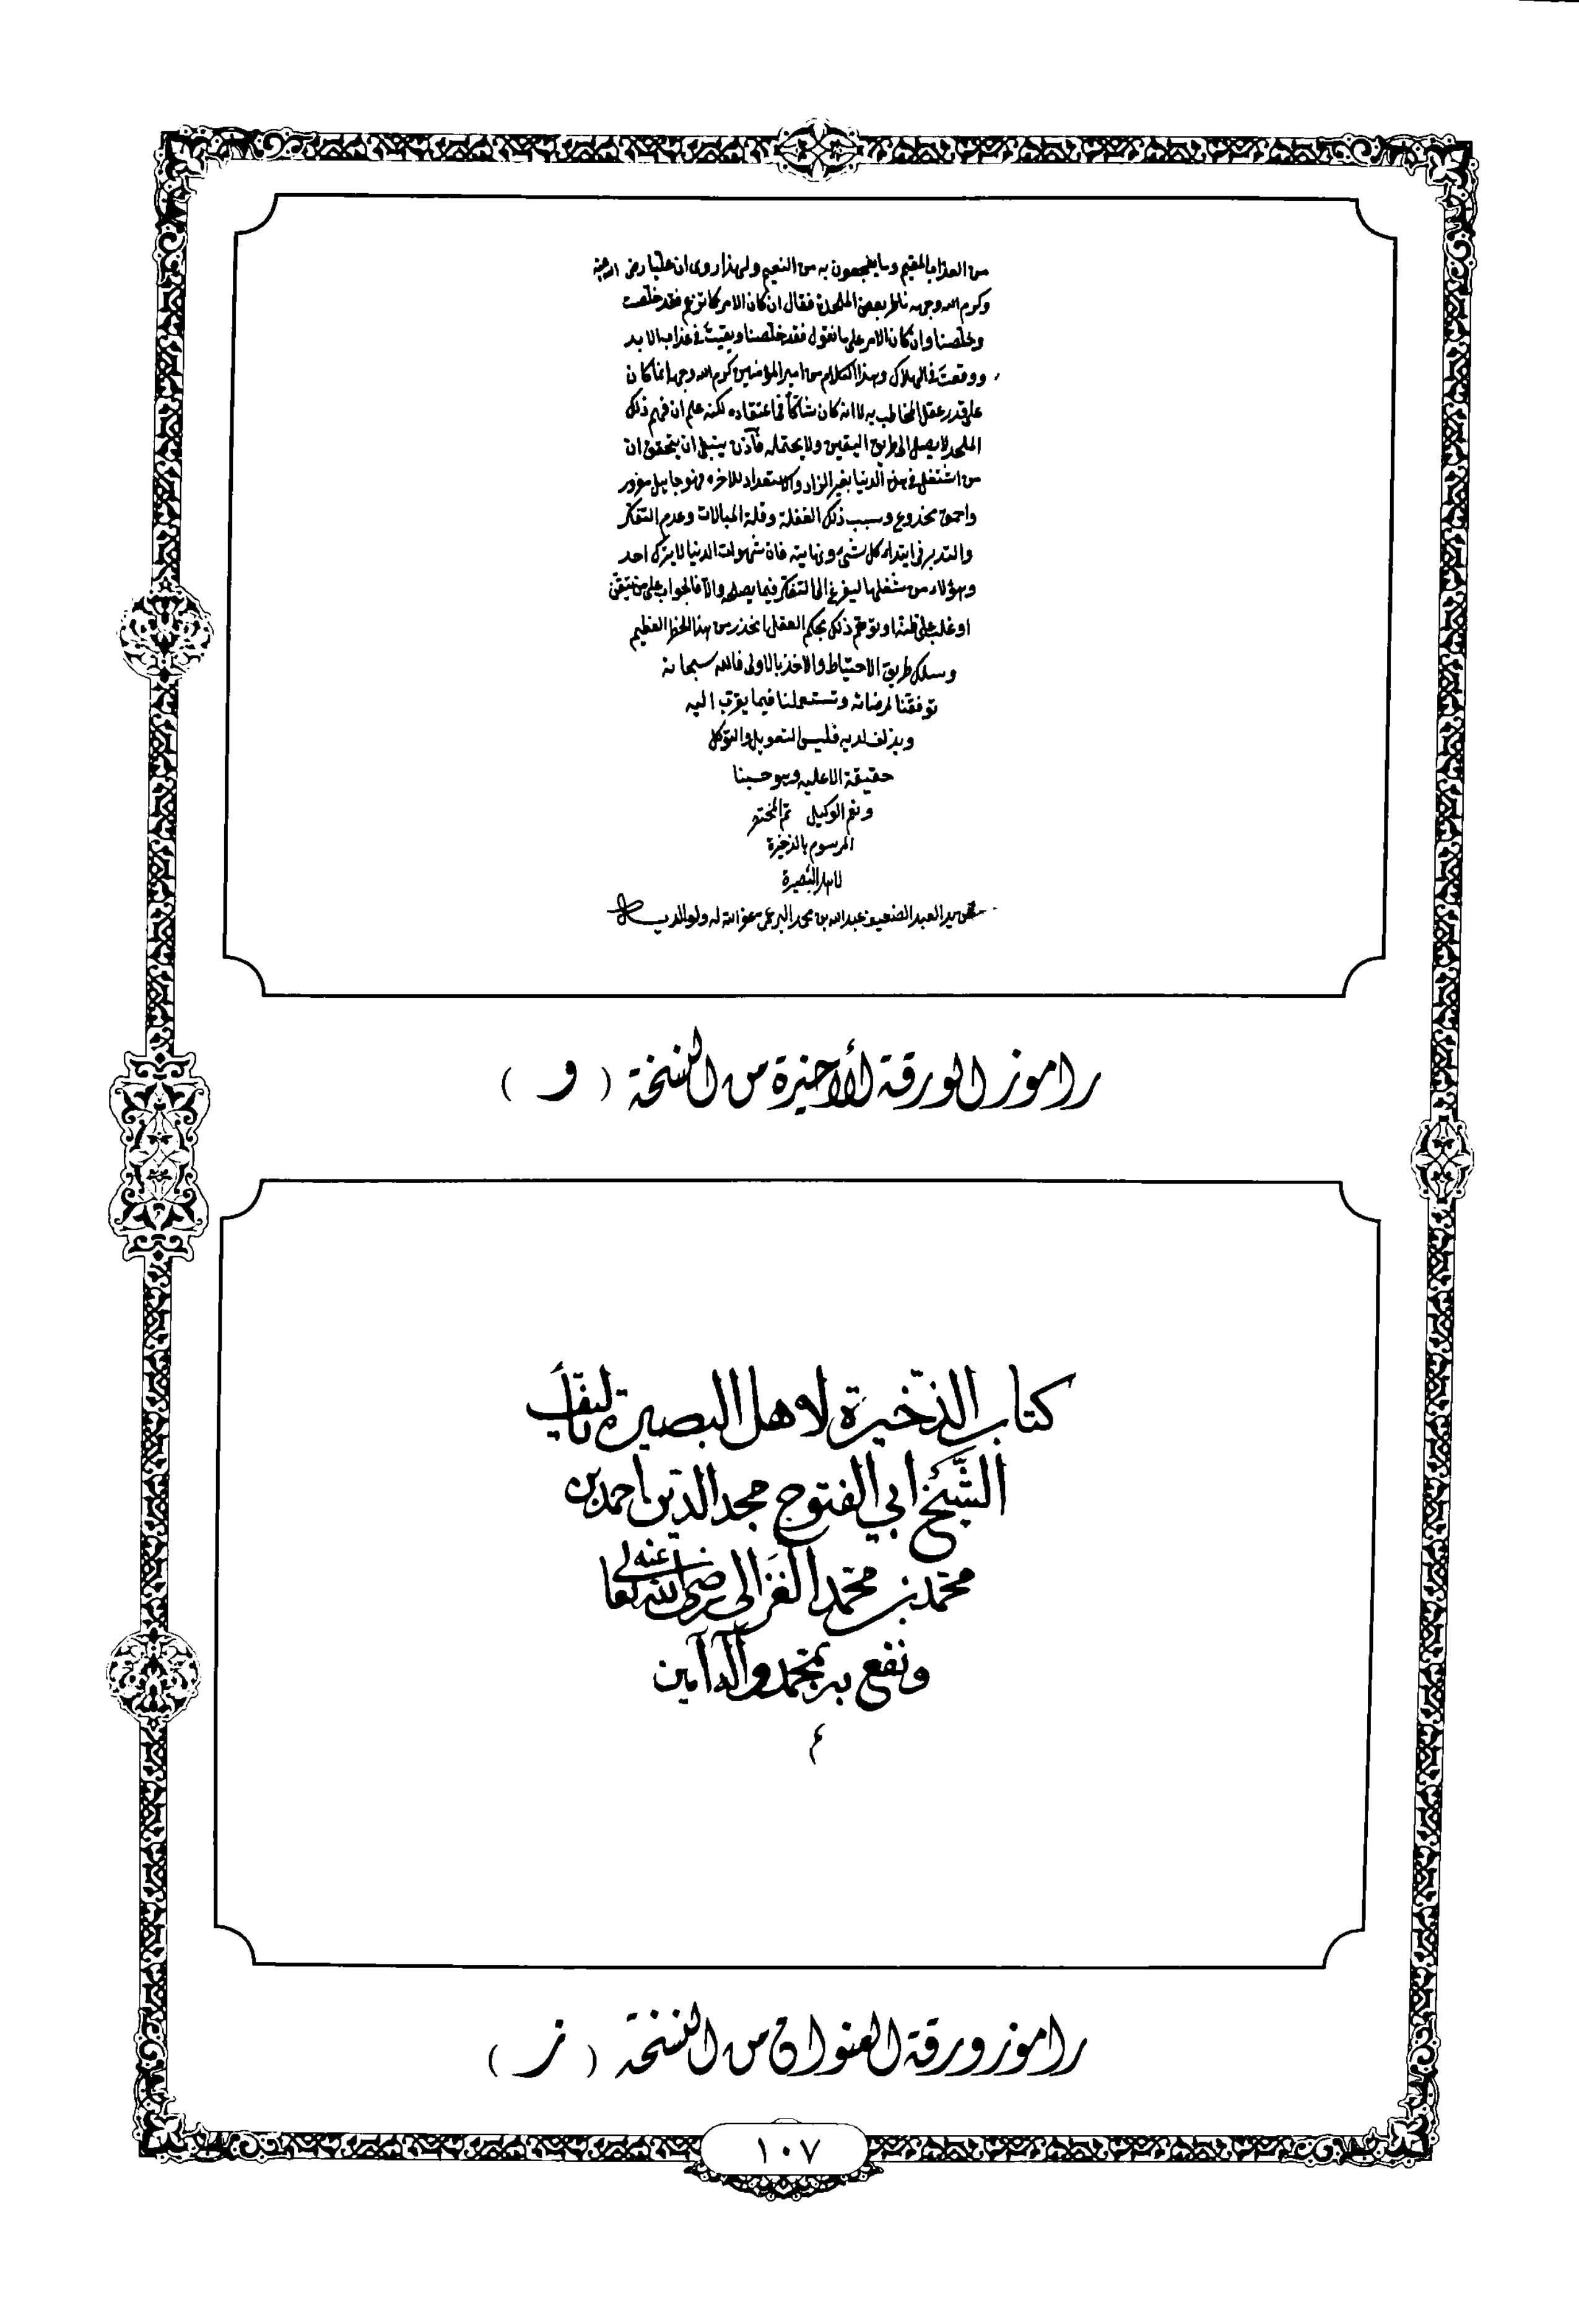 من العذاب المقيم وما يفجعون به من النعيم ولهذا روى ان عليا رضى الله عنه
وكرم الله وجهه ناظر بعض الملحدة فقال ان كان الامر كما تزعم فقد خلصت
وخلصنا وان كان الامر على ما نقول فقد خلصنا وبقيت فى عذاب الابد
ووقعت فى الهلاك وهذا الكلام من امير المؤمنين كرم الله وجهه انما كان
على قدر عقل المخاطب به لا انه كان شاكاً فى اعتقاده لكنه علم ان فهم ذلك
الملحد لا يصل الى طريق اليقين ولا يحتمله فآذن ينبغى ان يتحقق ان
من اشتغل فى هذه الدنيا بغير الزاد والاستعداد للاخره فهو جاهل مغرور
واحمق مخدوع وسبب ذلك الغفلة وقلة المبالات وعدم التفكر
والتدبر فى ابتداء كل شىء ونهايته فان شهوات الدنيا لا يترك احد
وهؤلاء من شغلها ليفرغ الى التفكر فيما يصلحه والا فالجواب على من تيقن
او غلب على ظنه او توهم ذلك بحكم العقل ان يحذر من هذا الخطر العظيم
وسلك طريق الاحتياط والاخذ بالاولى فالله سبحانه
توفقنا لمرضاته وتستعملنا فيما يقرب اليه
ويزلف لديه فليس التعويل والتوكل
حقيقة الا عليه وهو حسبنا
ونعم الوكيل تم المختصر
المرسوم بالذخيرة
لاهل البصيرة
العبد الضعيف عبدالله بن محمد عفى الله له ولوالديه
راموز الورقة الأخيرة من النسخة ( و )
كتاب الذّخيرة لاهل البصيرة تأليف
الشّيخ ابي الفتوح مجد الدين احمد بن
محمّد بن محمّد الغزالى رضى الله تعالى عنه
ونفع به بمحمد وآله آمين
م
راموز ورقة العنوان من النسخة ( ز )
١٠٧